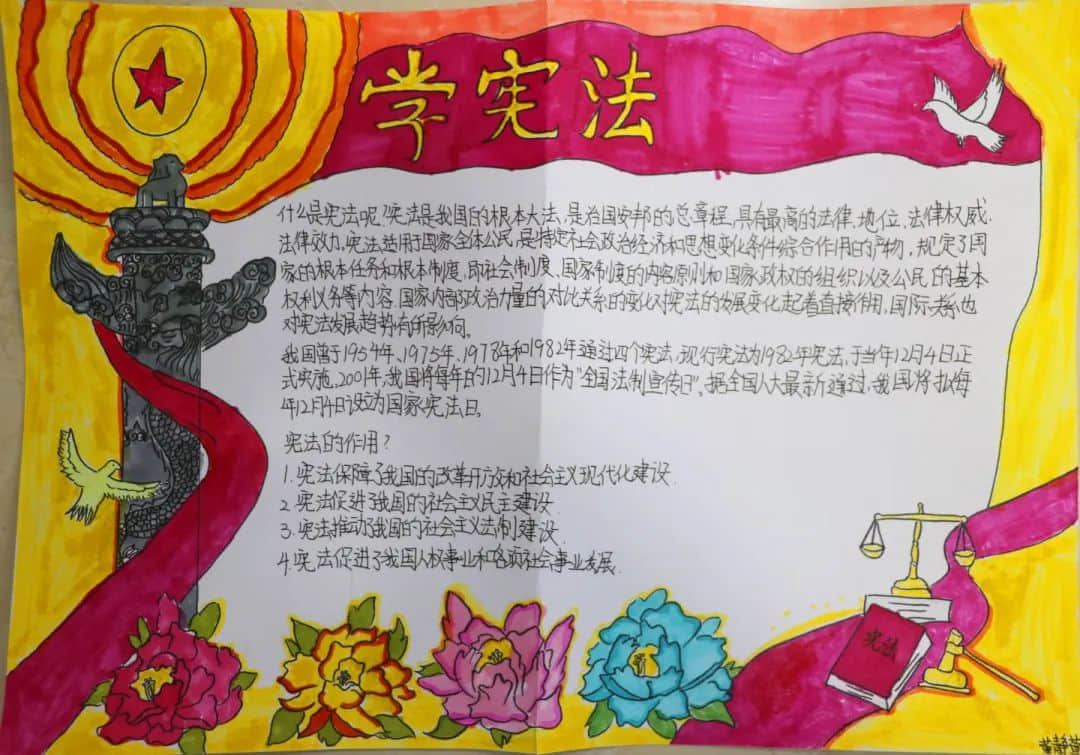 学宪法
什么是宪法呢?宪法是我国的根本大法,是治国安邦的总章程,具有最高的法律地位、法律权威、
法律效力。宪法适用于国家全体公民,是特定社会政治经济和思想变化条件综合作用的产物,规定了国
家的根本任务和根本制度,即社会制度、国家制度的内容原则和国家政权的组织以及公民的基本
权利义务等内容。国家内部政治力量的对比关系的变化对宪法的发展变化起着直接作用,国际关系也
对宪法发展趋势有所影响。
我国曾于1954年、1975年、1978年和1982年通过四个宪法,现行宪法为1982年宪法,于当年12月4日正
式实施。2001年,我国将每年的12月4日作为"全国法制宣传日"。据全国人大最新通过,我国将把每
年12月4日设为国家宪法日。
宪法的作用?
1.宪法保障了我国的改革开放和社会主义现代化建设.
2.宪法促进了我国的社会主义民主建设
3.宪法推动了我国的社会主义法制建设.
4.宪法促进了我国人权事业和各项社会事业发展.
宪法
黄静